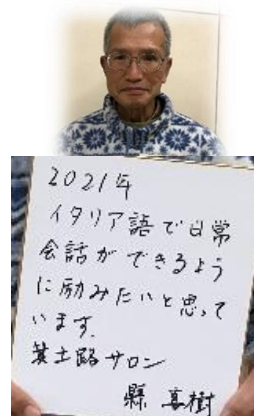 2021年
イタリア語で日常
会話ができるよう
に励みたいと思って
います。
箕土路サロン
縣 喜樹